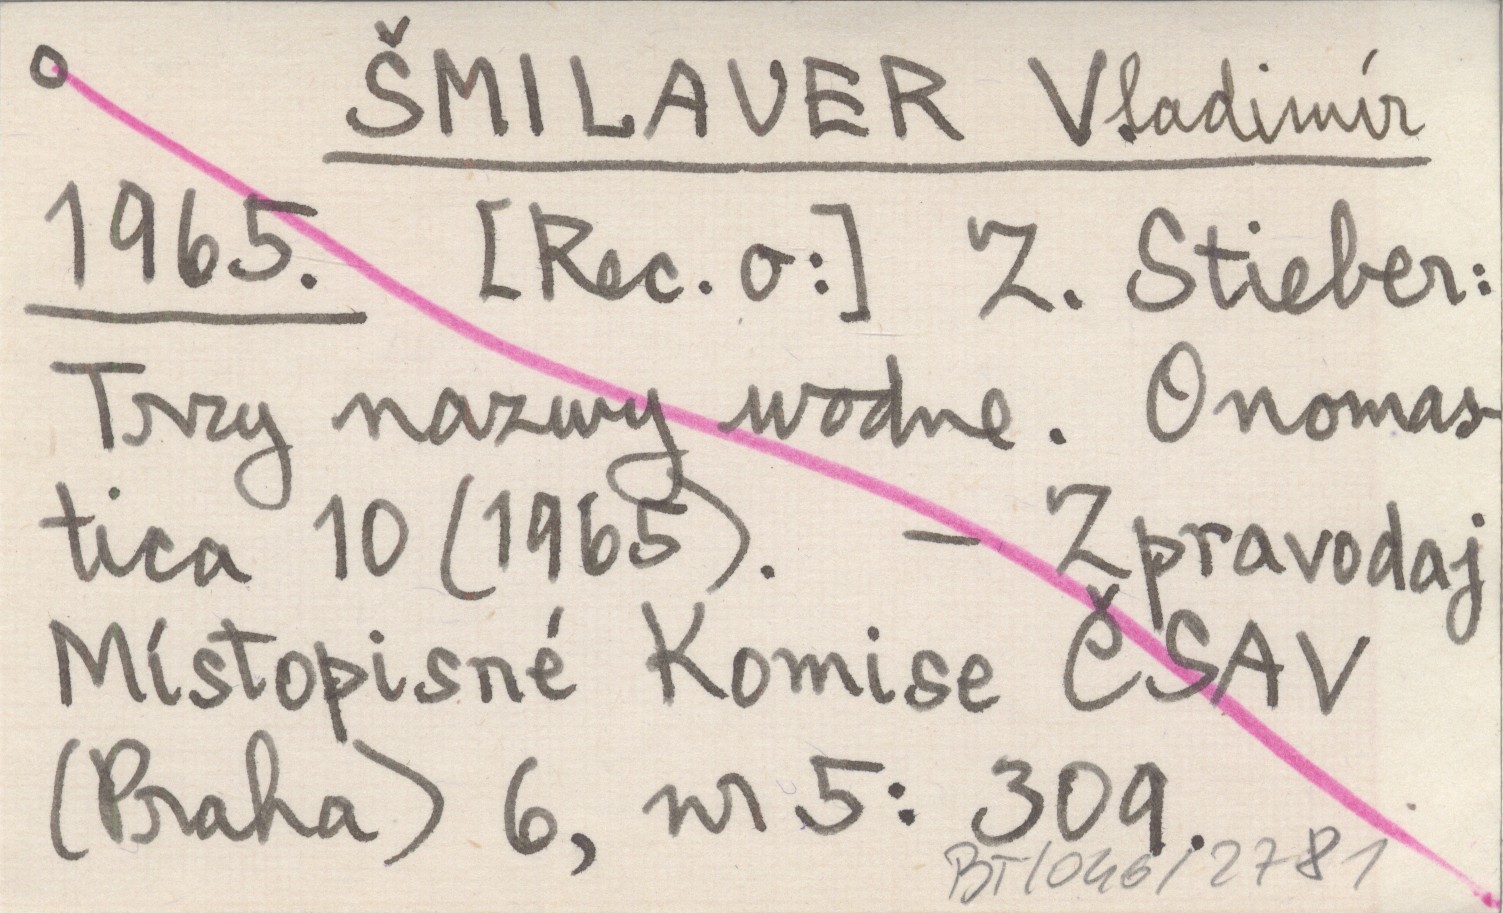 o ŠMILAVER Vladimír
1965. [Rec. o:] Z. Stieber:
Trzy nazwy wodne. Onomas-
tica 10 (1965). – Zpravodaj
Místopisné Komise ČSAV
(Praha) 6, nr 5: 309.
BT/046/2781